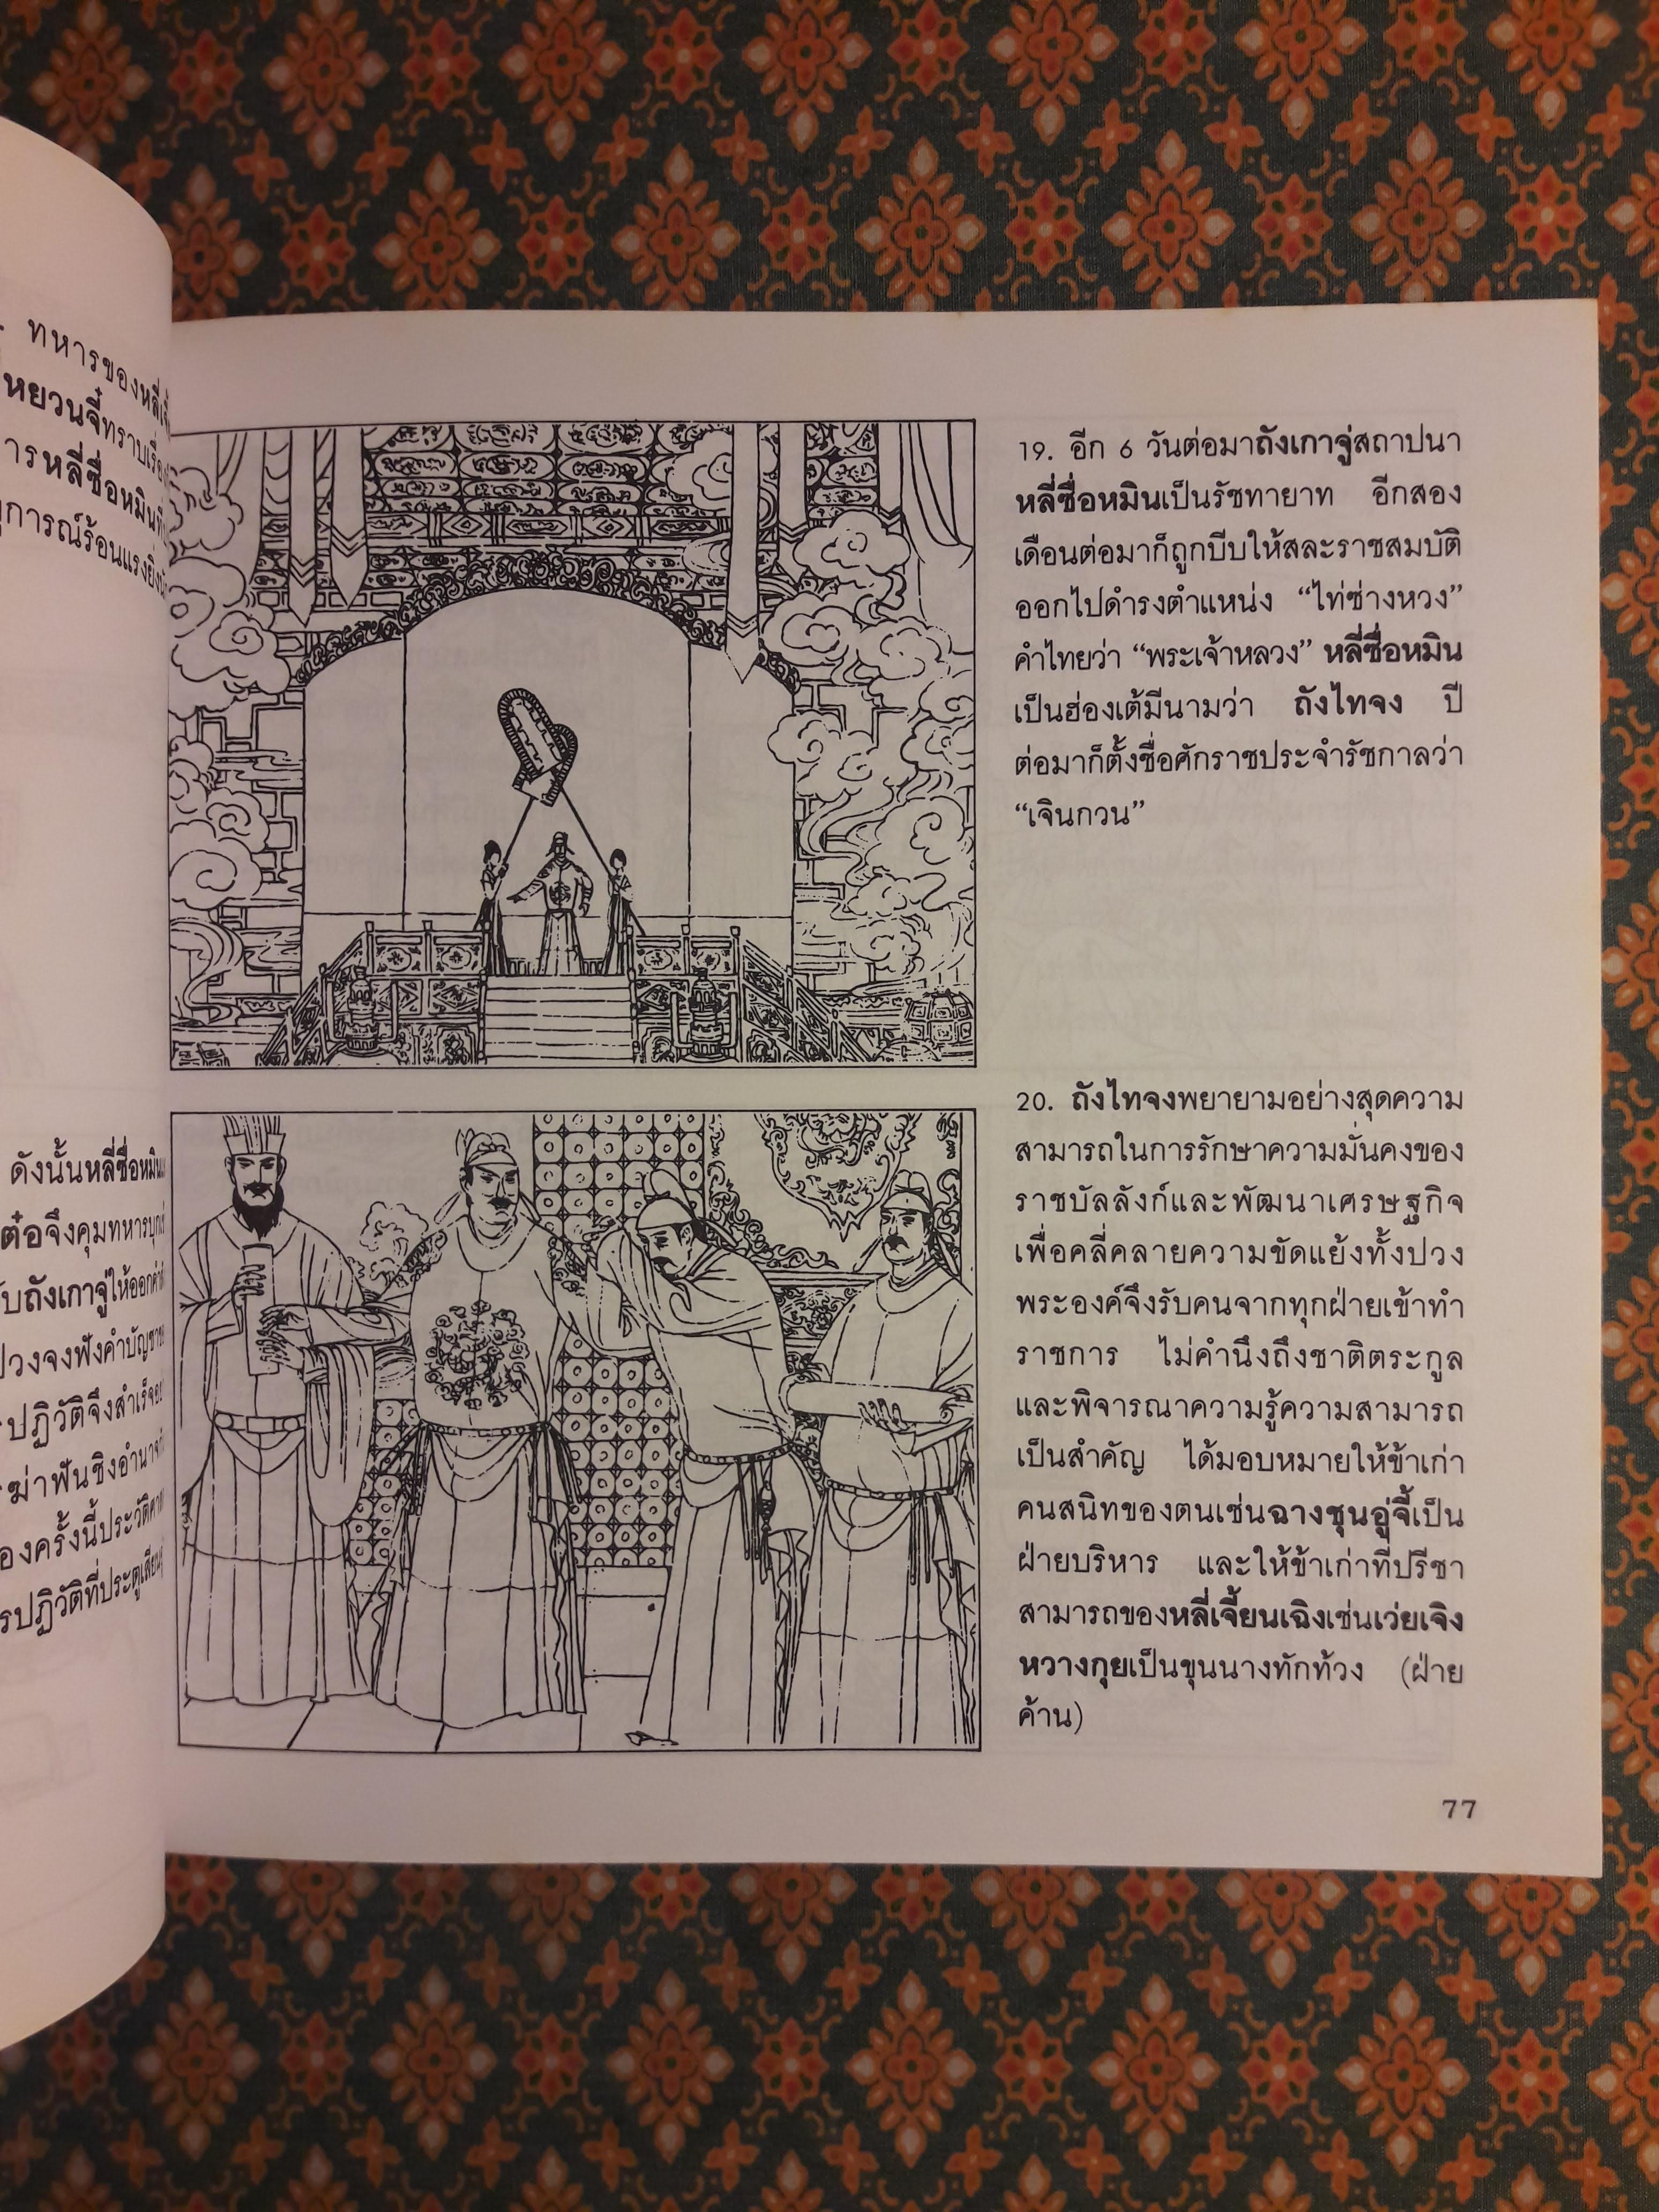 ทหารของหลี่
หยวนจี๋ทราบเรื่อง
หลี่ซื่อหมิน
การณ์ร้อนแรงยิ่ง
ดังนั้นหลี่ซื่อหมิน
ต๋อจึงคุมทหารบุก
ถังเกาจู่ให้ออก
จงฟังคำบัญชา
ปฏิวัติจึงสำเร็จ
ฆ่าฟันชิงอำนาจ
ครั้งนี้ประวัติ
ปฏิวัติที่ประตู
19. อีก 6 วันต่อมาถังเกาจู่สถาปนา
หลี่ซื่อหมินเป็นรัชทายาท อีกสอง
เดือนต่อมาก็ถูกบีบให้สละราชสมบัติ
ออกไปดำรงตำแหน่ง “ไท่ซ่างหวง”
คำไทยว่า “พระเจ้าหลวง” หลี่ซื่อหมิน
เป็นฮ่องเต้มีนามว่า ถังไทจง ปี
ต่อมาก็ตั้งชื่อศักราชประจำรัชกาลว่า
“เจินกวน”
20. ถังไทจงพยายามอย่างสุดความ
สามารถในการรักษาความมั่นคงของ
ราชบัลลังก์และพัฒนาเศรษฐกิจ
เพื่อคลี่คลายความขัดแย้งทั้งปวง
พระองค์จึงรับคนจากทุกฝ่ายเข้าทำ
ราชการ ไม่คำนึงถึงชาติตระกูล
และพิจารณาความรู้ความสามารถ
เป็นสำคัญ ได้มอบหมายให้ข้าเก่า
คนสนิทของตนเช่นฉางซุนอู่จี้เป็น
ฝ่ายบริหาร และให้ข้าเก่าที่ปรีชา
สามารถของหลี่เจี้ยนเฉิงเช่นเว่ยเจิง
หวางกุยเป็นขุนนางทักท้วง (ฝ่าย
ค้าน)
77